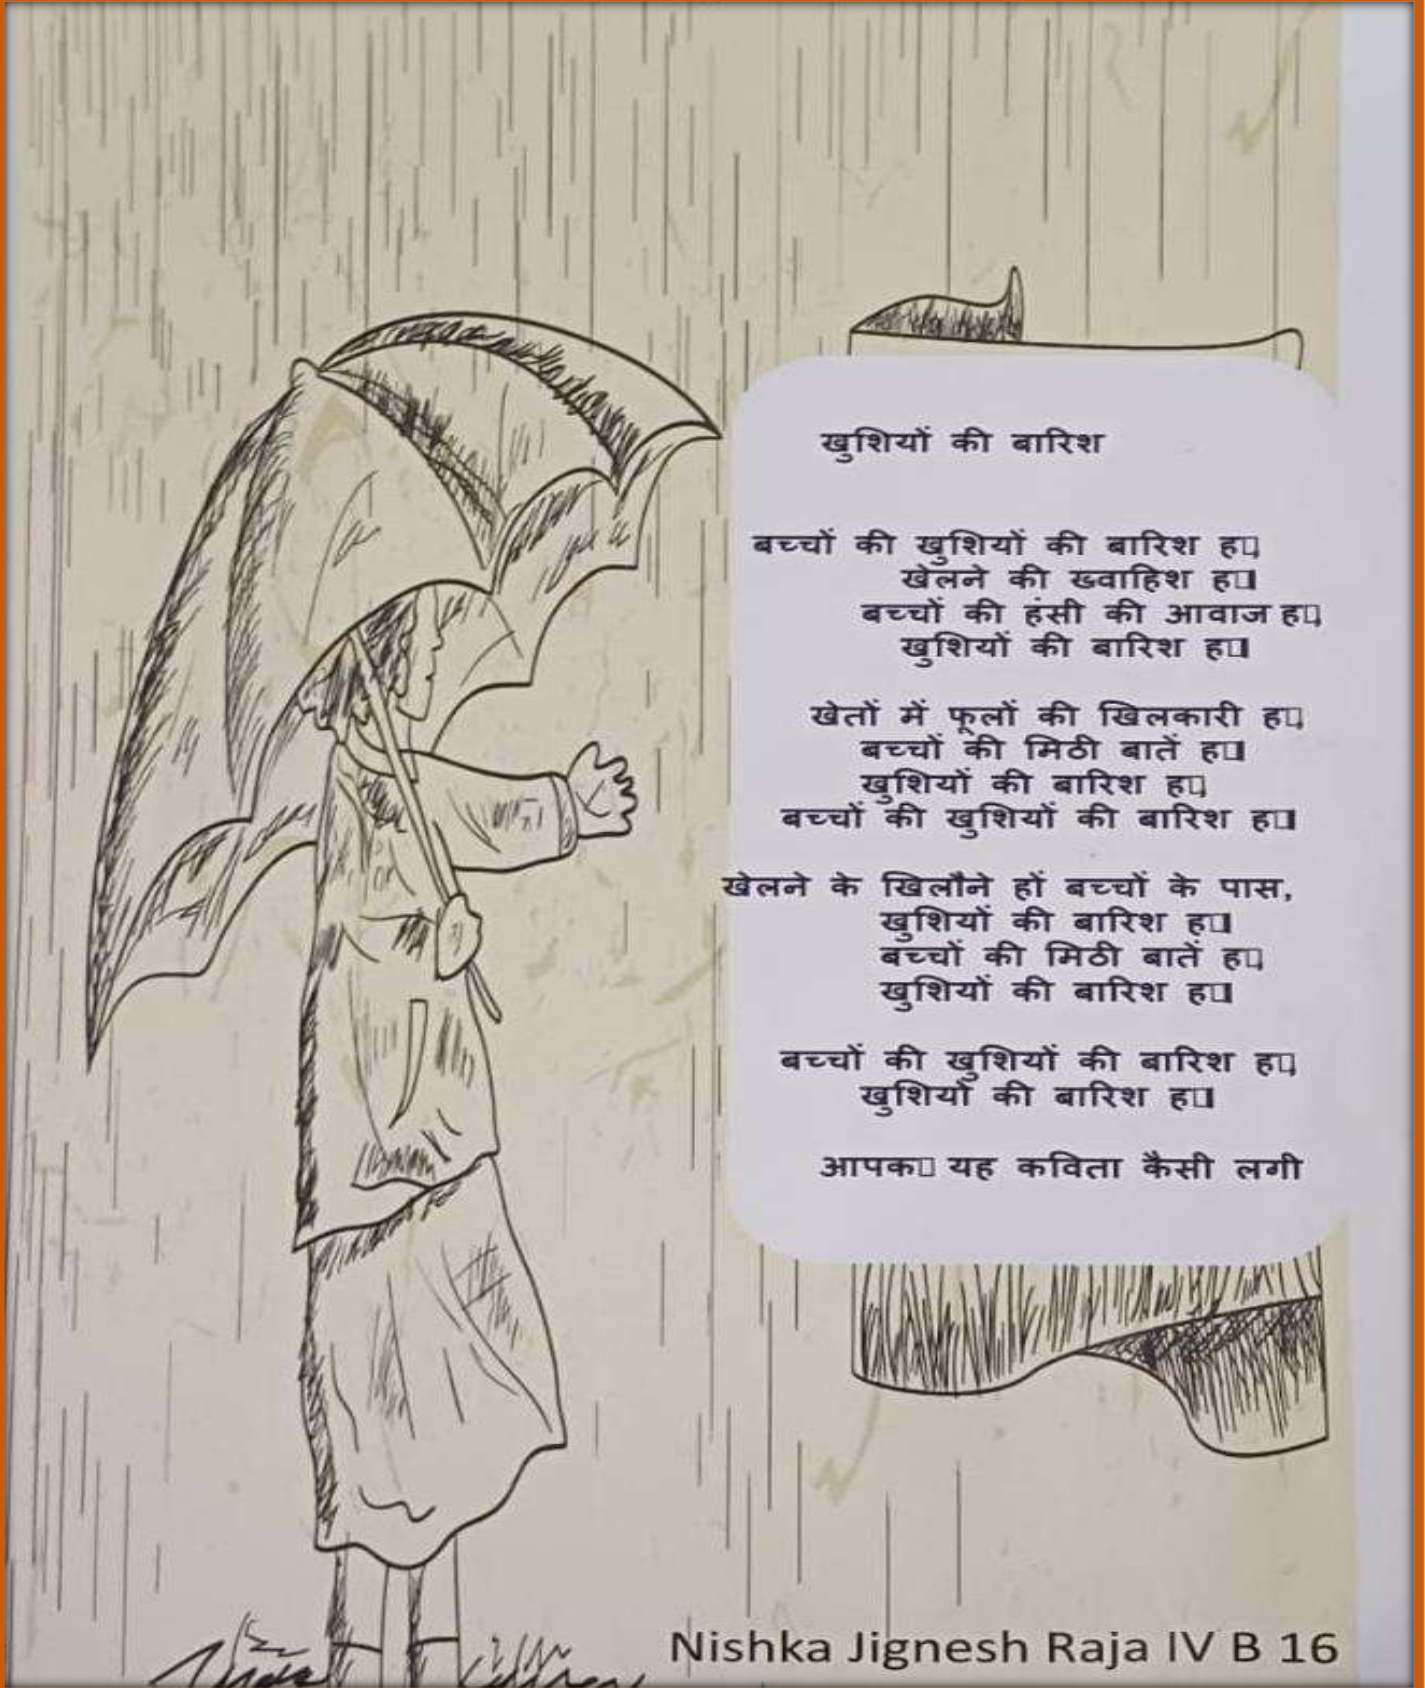 खुशियों की बारिश
बच्चों की खुशियों की बारिश ह□,
खेलने की ख्वाहिश ह□।
बच्चों की हंसी की आवाज ह□,
खुशियों की बारिश ह□।
खेतों में फूलों की खिलकारी ह□,
बच्चों की मिठी बातें ह□।
खुशियों की बारिश ह□,
बच्चों की खुशियों की बारिश ह□।
खेलने के खिलौने हों बच्चों के पास,
खुशियों की बारिश ह□।
बच्चों की मिठी बातें ह□,
खुशियों की बारिश ह□।
बच्चों की खुशियों की बारिश ह□,
खुशियों की बारिश ह□।
आपक□ यह कविता कैसी लगी
Nishka Jignesh Raja IV B 16